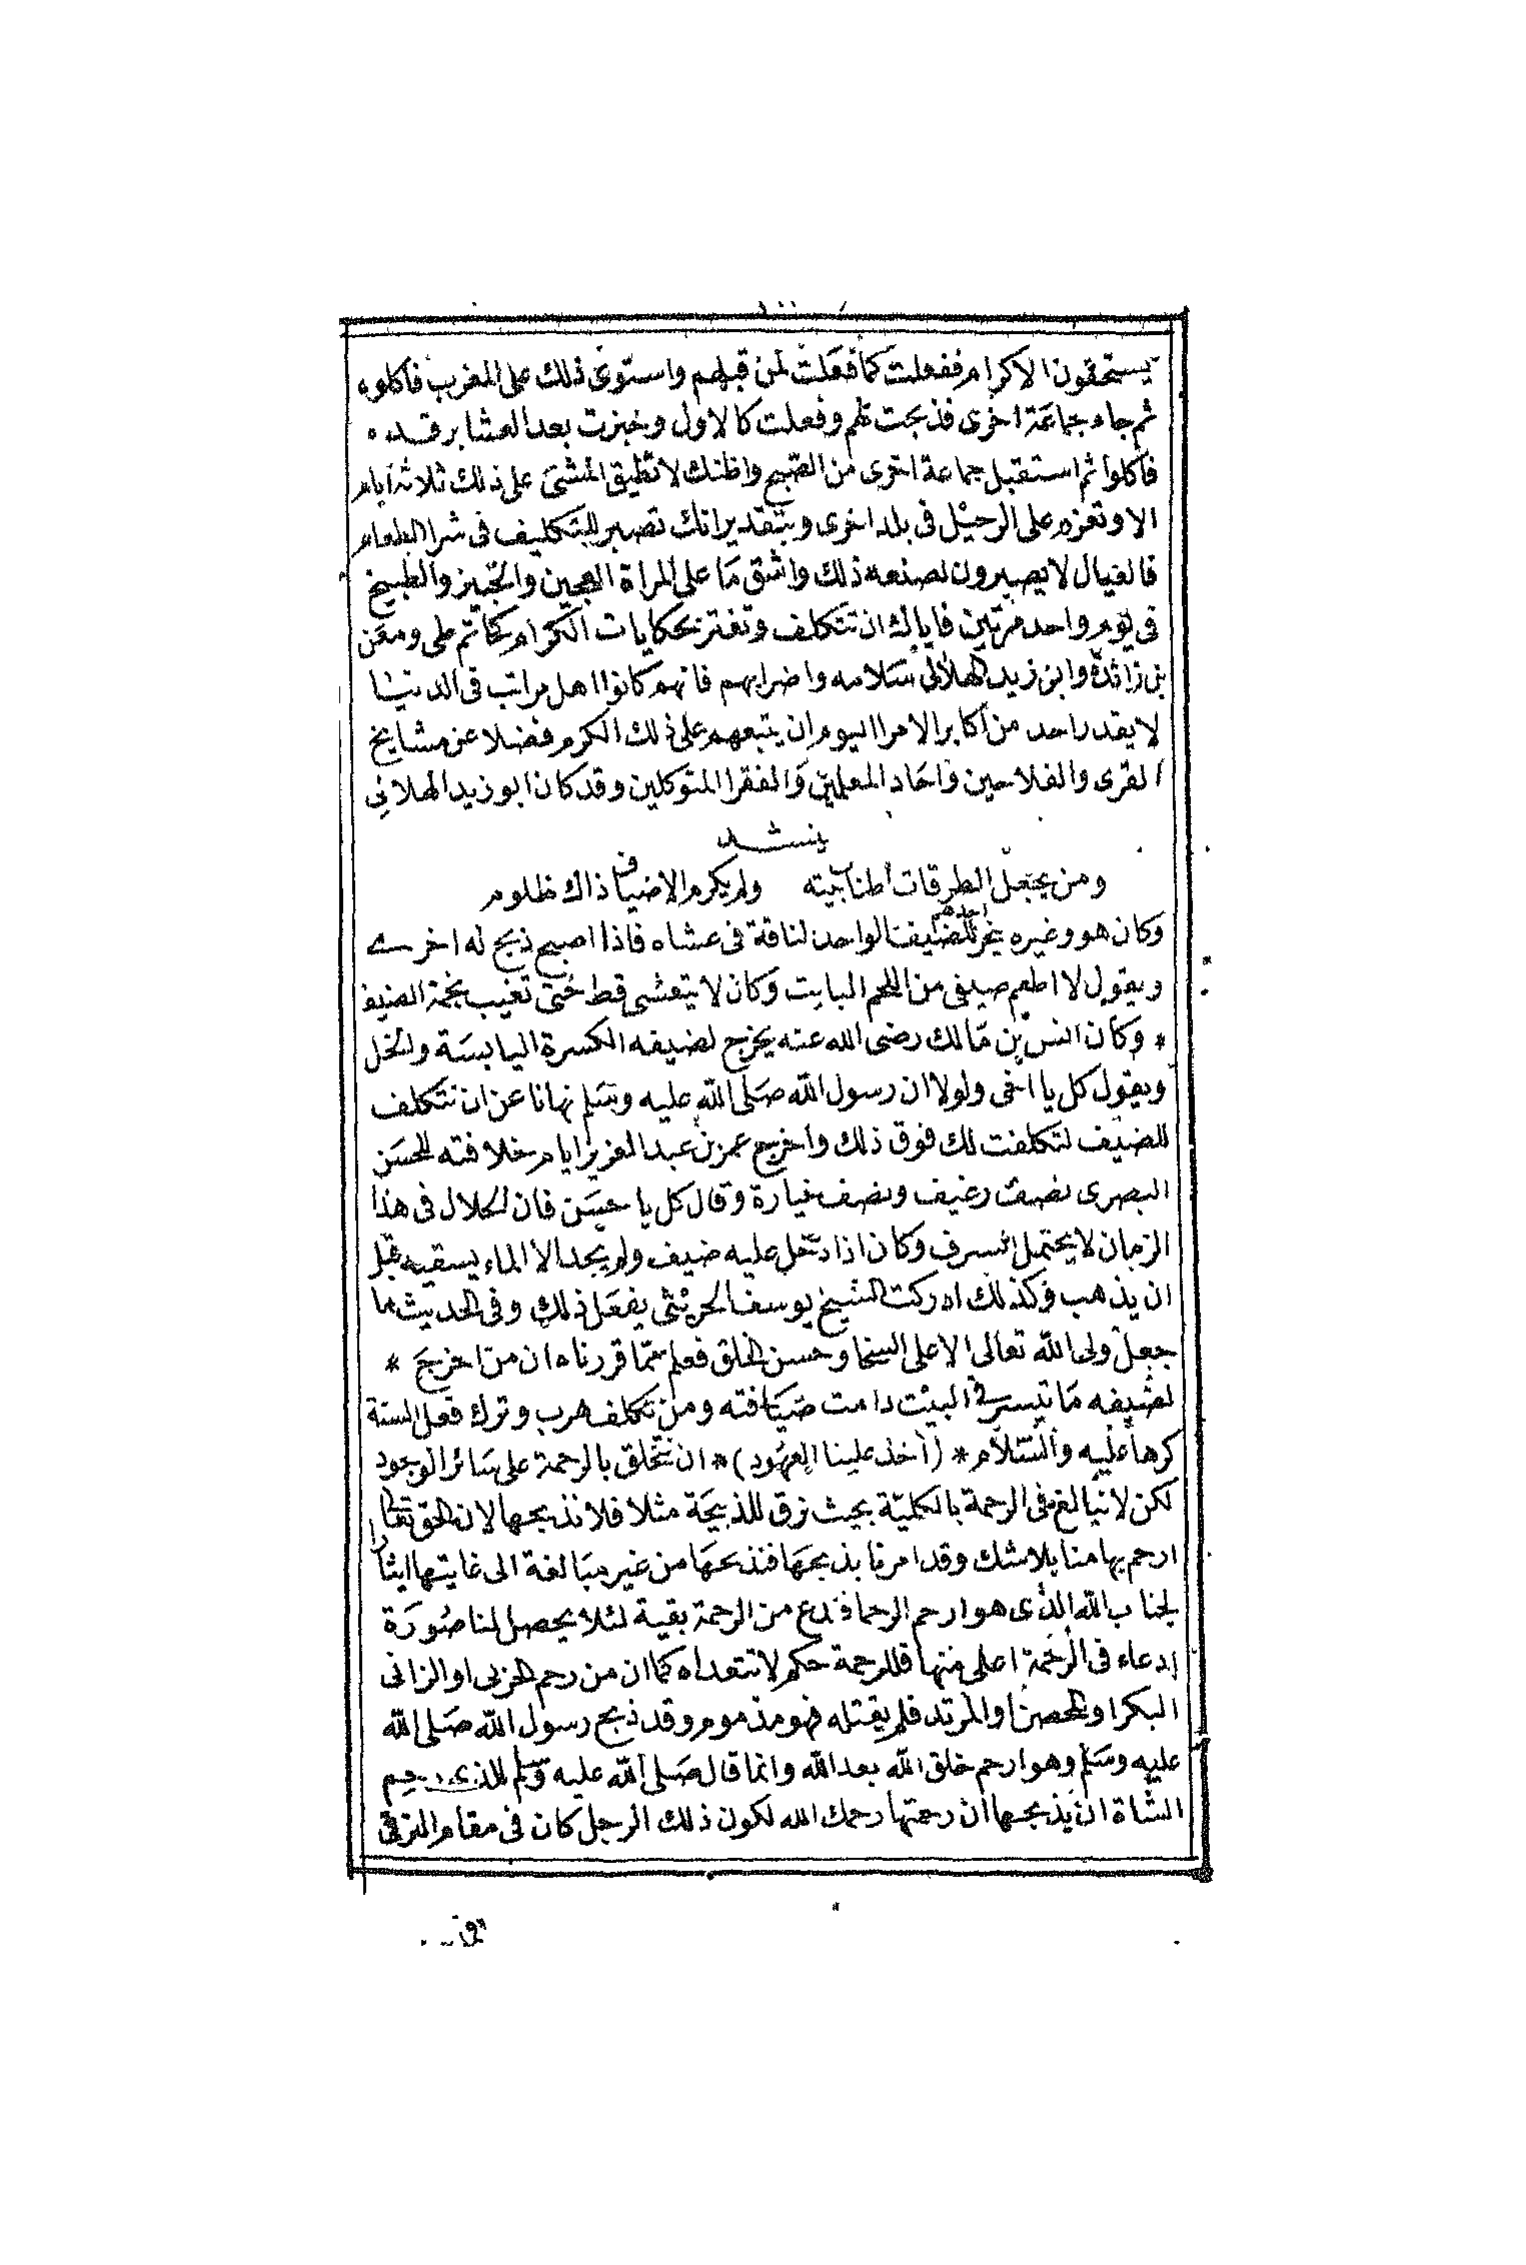 يستحقون الاكرام ففعلت كما فعلت لمن قبلهم واستوى ذلك على المغرب فاكلوه
ثم جاء جماعة اخرى فذبحت لهم وفعلت كالاول وخبزت بعد العشا برقده
فاكلوا ثم استقبل جماعة اخرى من الصبح واظنك لا تطيق المشى على ذلك ثلاثة ايام
الا وتعزم على الرحيل فى بلد اخرى وبتقدير انك تصبر للتكليف فى شرا الطعام
فالعيال لا يصبرون لصنعة ذلك واشق ما على المراة العجين والخبيز والطبيخ
فى يوم واحد مرتين فاياك ان تتكلف وتغتر بحكايات الكرام كحاتم طى ومعن
بن زائدة وابو زيد الهلالى سلامه واضرابهم فانهم كانوا اهل مراتب فى الدنيا
لا يقدر احد من اكابر الامرا اليوم ان يتبعهم على ذلك الكرم فضلا عن مشايخ
القرى والفلاحين واحاد المعلمين والفقرا المتوكلين وقد كان ابو زيد الهلالى
ينشد
ومن يجعل الطرقات اطناب بيته ولم يكرم الاضياف ذاك ظلوم
وكان هو وغيره ينحر احدهم للضيف الواحد الناقة فى عشاه فاذا اصبح ذبح له اخرى
ويقول لا اطعم ضيفى من اللحم البايت وكان لا يتعشى قط حتى تغيب نجمة الضيف
* وكان انس بن مالك رضى الله عنه يخرج لضيفه الكسرة اليابسة والخل
ويقول كل يا اخى ولولا ان رسول الله صلى الله عليه وسلم نهانا عن ان نتكلف
للضيف لتكلفت لك فوق ذلك واخرج عمر بن عبد العزيز ايام خلافته للحسن
البصرى نصف رغيف ونصف خيارة وقال كل يا حسن فان الحلال فى هذا
الزمان لا يحتمل السرف وكان اذا دخل عليه ضيف ولم يجد الا الماء يسقيه قبل
ان يذهب وكذلك ادركت الشيخ يوسف الحريثى يفعل ذلك وفى الحديث ما
جعل ولى الله تعالى الا على السخا وحسن الخلق فعلم مما قررناه ان من اخرج *
لضيفه ما تيسر فى البيت دامت ضيافته ومن تكلف هرب وترك فعل السنة
كرها عليه والسلام * (اخذ علينا العهود) * ان نتخلق بالرحمة على سائر الوجود
لكن لا نبالغ فى الرحمة بالكلية بحيث نرق للذبيحة مثلا فلا نذبحها لان الحق تعالى
ارحم بها منا بلا شك وقد امرنا بذبحها فنذبحها من غير مبالغة الى غايتها ايثارا
لجناب الله الذى هو ارحم الرحما فندع من الرحمة بقية لئلا يحصل لنا صورة
ادعاء فى الرحمة اعلى منها فللرحمة حكم لا تتعداه كما ان من رحم الحربى او الزانى
البكر او المحصن او المرتد فلم يقتله فهو مذموم وقد ذبح رسول الله صلى الله
عليه وسلم وهو ارحم خلق الله بعد الله وانما قال صلى الله عليه وسلم للذى رحم
الشاة ان يذبحها ان رحمتها رحمك الله لكون ذلك الرجل كان فى مقام الترقى